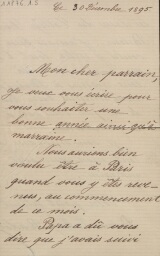 Ce 30 Décembre 1895
Mon cher parrain,
je vous écrire pour
vous souhaiter une
bonne année ainsi qu'à
marraine.
Nous aurions bien
voulu être à Paris
quand vous y êtes reve-
nus, au commencement
de ce mois.
Papa a dû vous
dire que j'avais suivi